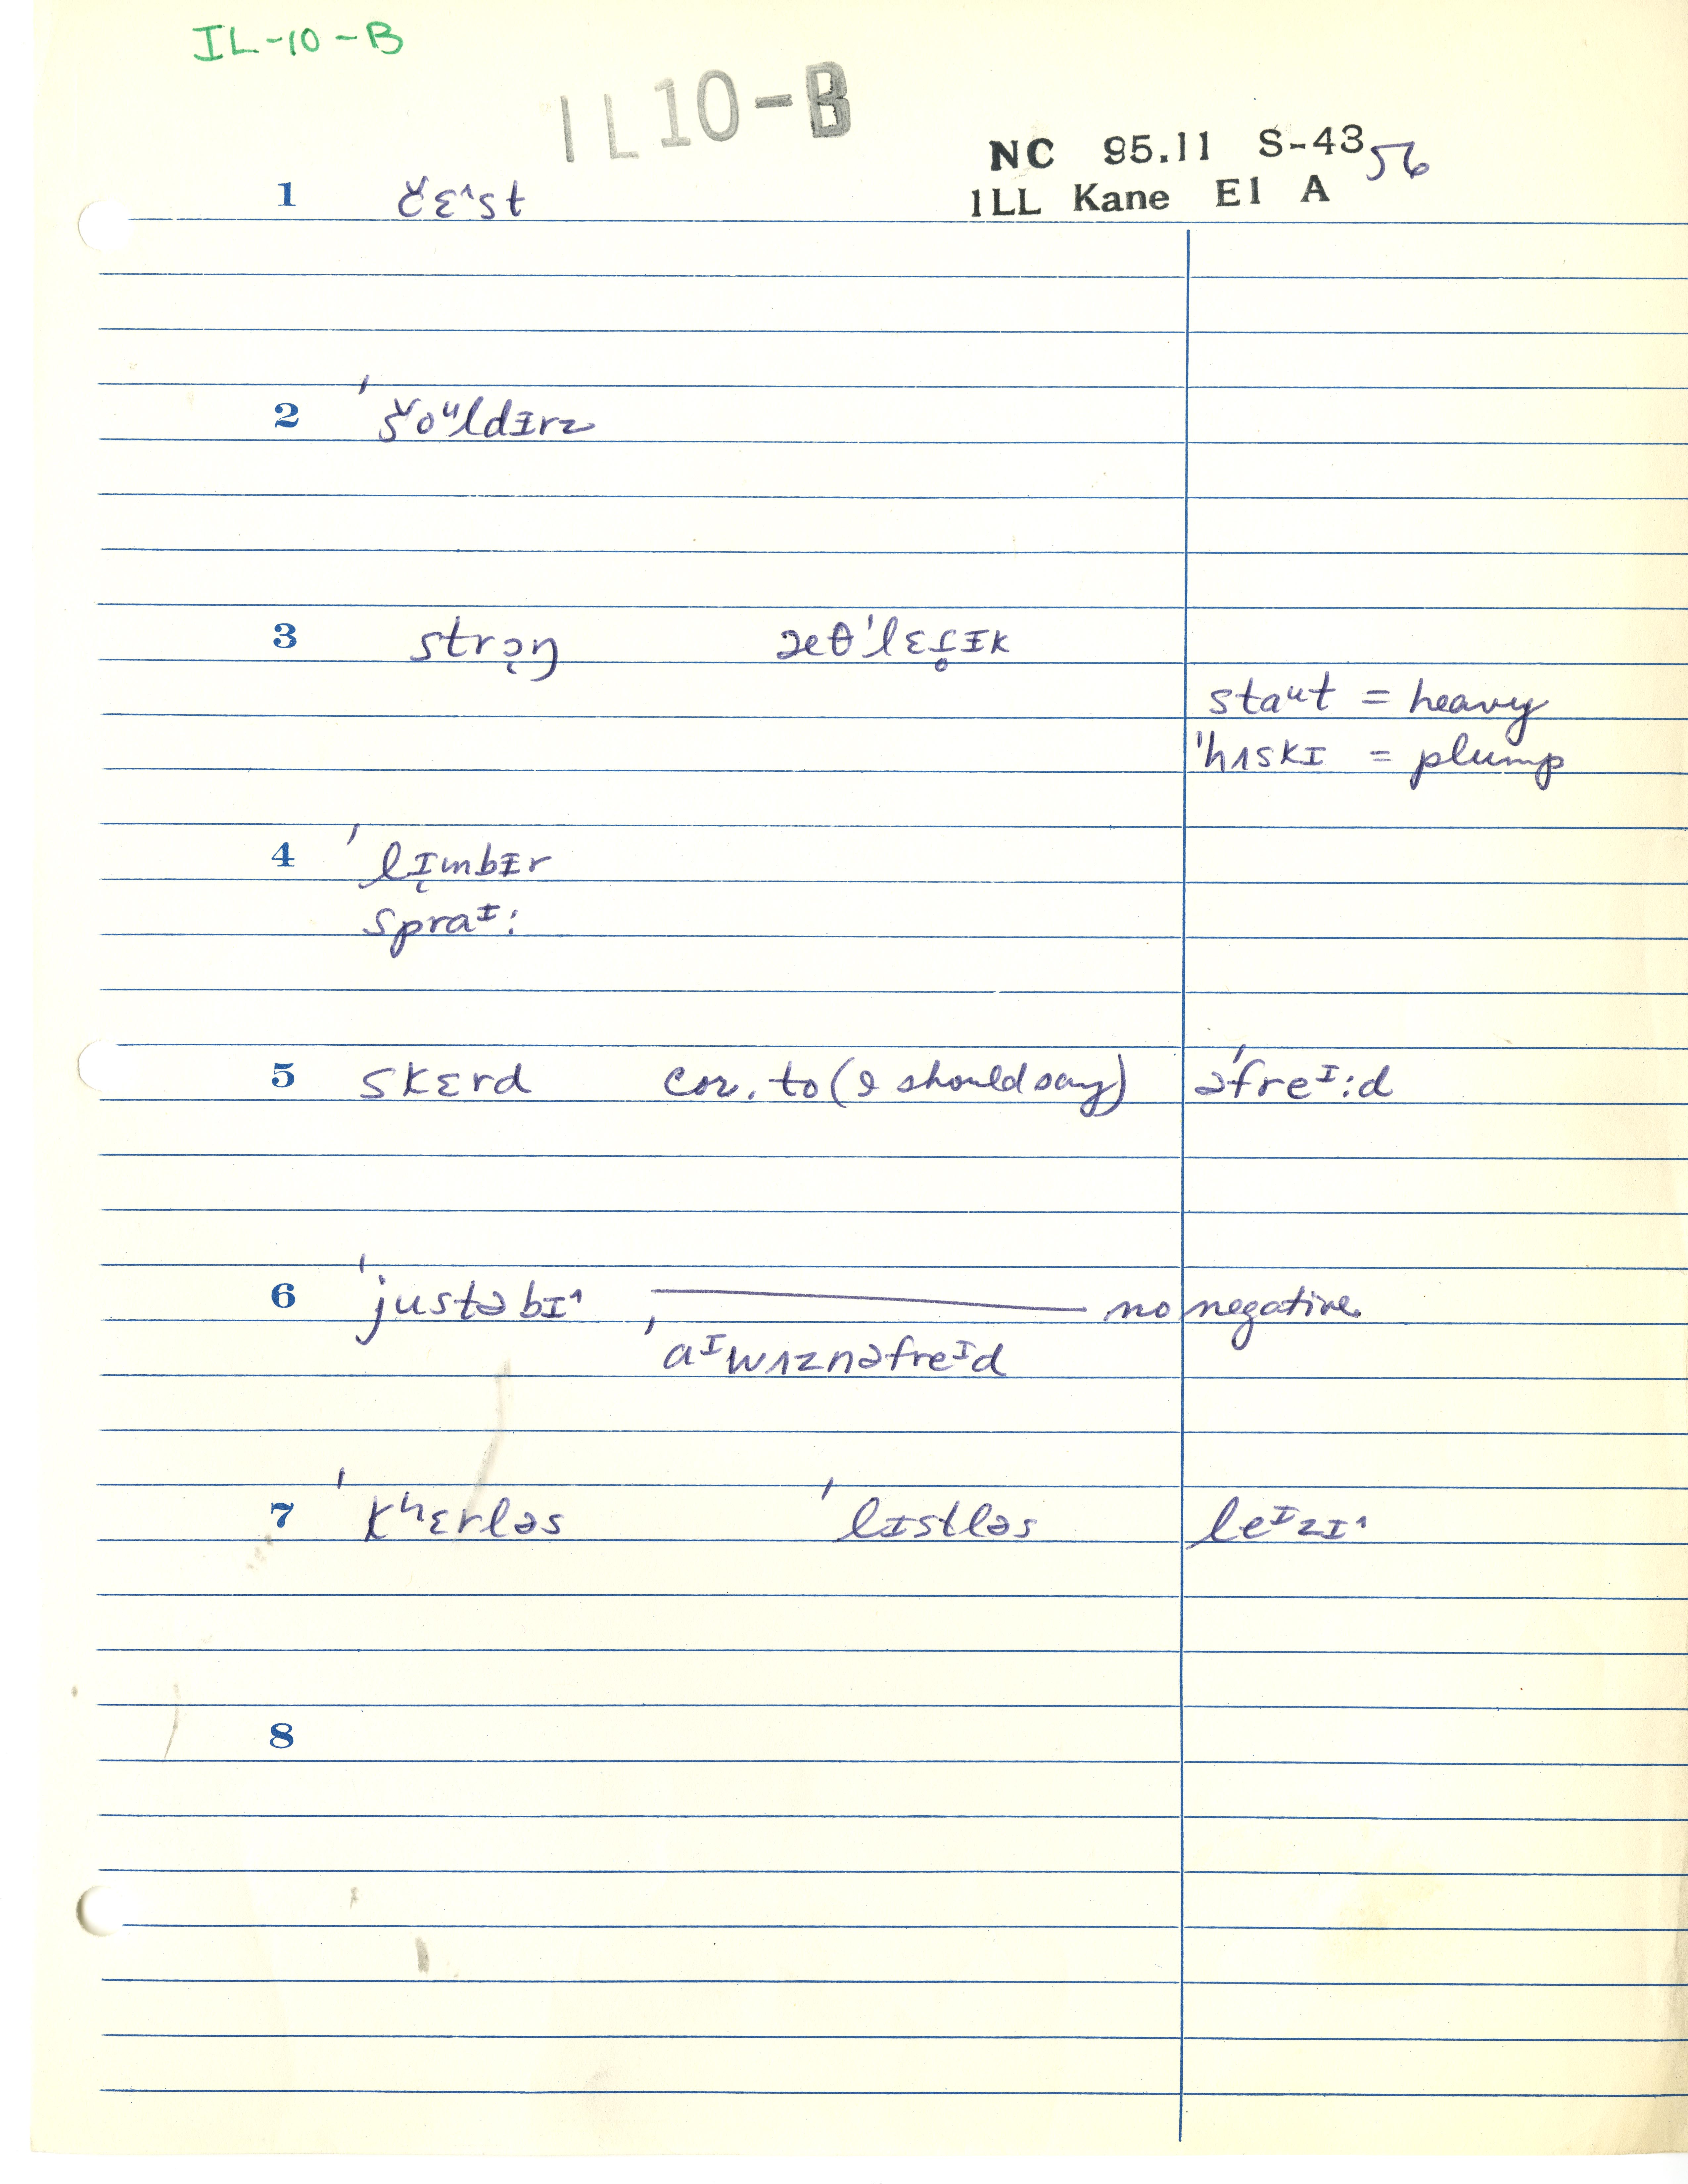 IL-10-B
IL10-B
NC 95.11 S-43 56
ILL Kane E1 A
1 č̌ɛ˄st
2 ˈšoᵘldɪ̵rz
3 strɔ̨ŋ æθˈlɛɾ̥ɪ̵k
staᵘt = heavy
ˈhʌskɪ = plump
4 ˈlɪ̨mbɪ̵r
spraᶧ:
5 skɛrd cor. to (I should say) əˈfreᴵ:d
6 ˈjustəbɪ˄ ——— no negative
ˈaᴵwʌznəfreᴵd
7 ˈkʰɛrləs ˈlɪstləs leᴵzɪ˄
8